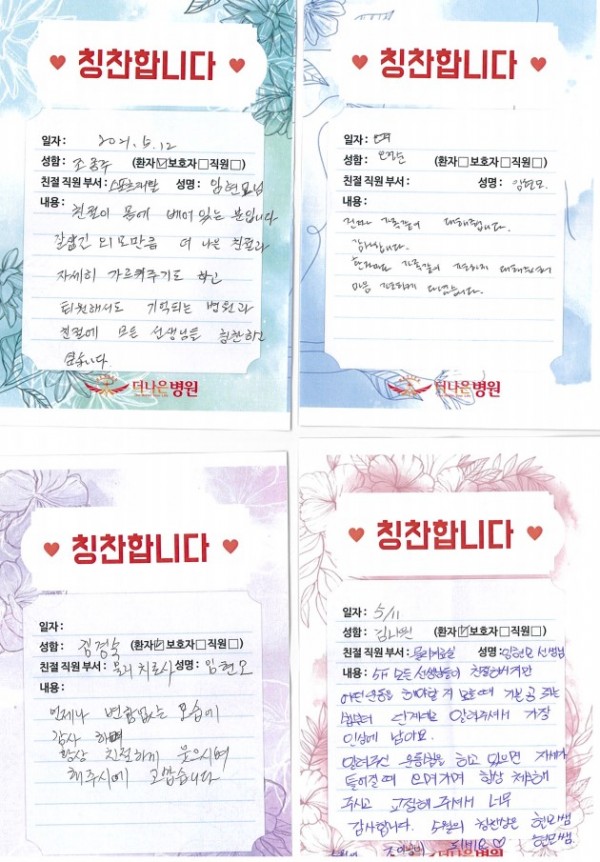 칭찬합니다
일자: 2021.5.12
성함: 조종주 (환자☑보호자□직원□)
친절 직원 부서: 스포츠재활 성명: 임현모님
내용:
친절이 몸에 배어 있는 분입니다
잘생긴 외모만큼 더 나은 친절과
자세히 가르켜주기도 하고
퇴원해서도 기억되는 병원과
친절에 모든 선생님을 칭찬하고
싶습니다.
더나은병원
칭찬합니다
일자:
성함: (환자□보호자□직원□)
친절 직원 부서: 성명: 임현모.
내용:
가족같이 대해줍니다.
감사합니다.
환자마다 가족같이
마음
더나은병원
칭찬합니다
일자:
성함: 김경숙 (환자☑보호자□직원□)
친절 직원 부서: 물리치료사 성명: 임현모
내용:
언제나 변함없는 모습에
감사 하며
항상 친절하게 웃으시며
해주시에 고맙습니다
칭찬합니다
일자: 5/11
성함: (환자☑보호자□직원□)
친절 직원 부서: 물리치료실 성명: 임현모 선생님
내용: 5F 모든 선생님들이 친절하시지만
어떤 운동을 해야할 지 모를 때 기본
부터 단계별로 알려주셔서 가장
인상에 남아요.
알려주신 운동법을 하고 있으면 자세가
틀어질 때 오며가며 항상 체크해
주시고 교정해 주셔서 너무
감사합니다. 5월의 칭찬상은 현모쌤
드리세요♡ 현모쌤